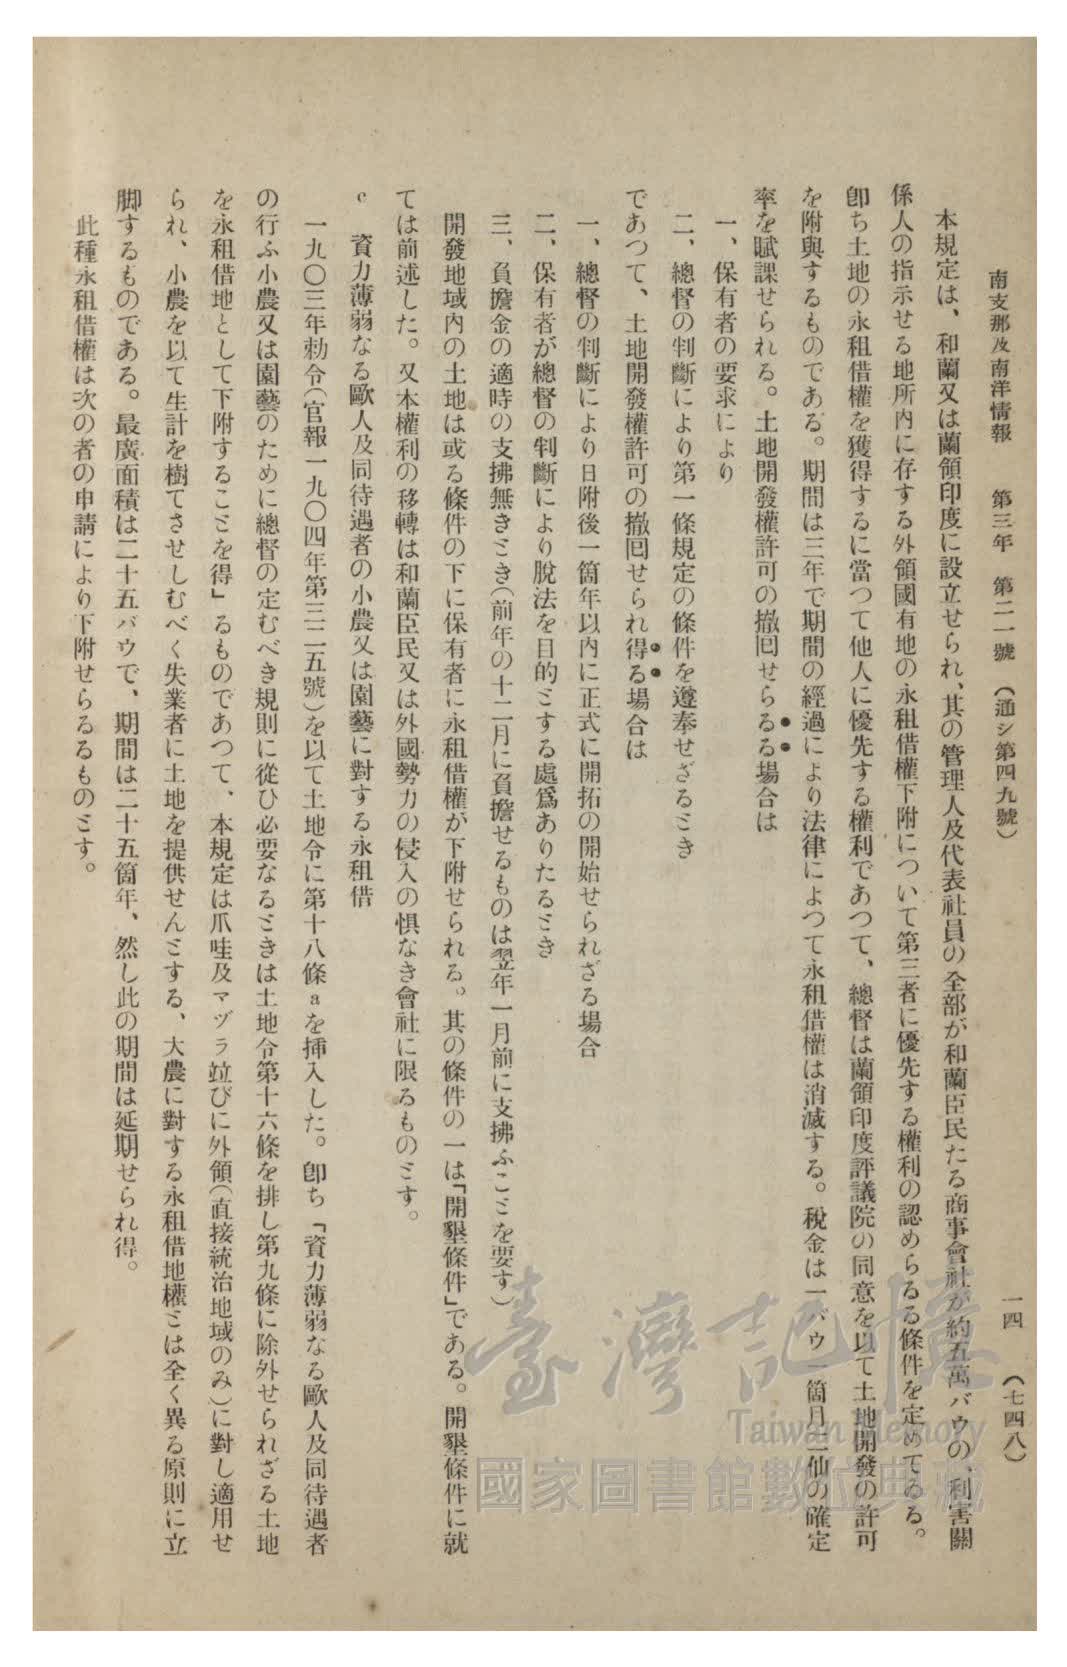 南支那及南洋情報　第三年　第二一號　（通シ第四九號）　一四　（七四八）
本規定は、和蘭又は蘭領印度に設立せられ、其の管理人及代表社員の全部が和蘭臣民たる商事會社が約五萬バウの、利害關
係人の指示せる地所內に存する外領國有地の永租借權下附について第三者に優先する權利の認めらるる條件を定めてゐる。
卽ち土地の永租借權を獲得するに當つて他人に優先する權利であつて、總督は蘭領印度評議院の同意を以て土地開發の許可
を附與するものである。期間は三年で期間の經過により法律によつて永租借權は消滅する。稅金は一バウ一箇月二仙の確定
率を賦課せられる。土地開發權許可の撤囘せらるる場合は
一、保有者の要求により
二、總督の判斷により第一條規定の條件を遵奉せざるとき
であつて、土地開發權許可の撤囘せられ得る場合は
一、總督の判斷により日附後一箇年以內に正式に開拓の開始せられざる場合
二、保有者が總督の判斷により脫法を目的とする處爲ありたるとき
三、負擔金の適時の支拂無きとき（前年の十二月に負擔せるものは翌年一月前に支拂ふことを要す）
開發地域內の土地は或る條件の下に保有者に永租借權が下附せられる。其の條件の一は「開墾條件」である。開墾條件に就
ては前述した。又本權利の移轉は和蘭臣民又は外國勢力の侵入の惧なき會社に限るものとす。
c　資力薄弱なる歐人及同待遇者の小農又は園藝に對する永租借
一九〇三年勅令（官報一九〇四年第三二五號）を以て土地令に第十八條aを挿入した。卽ち「資力薄弱なる歐人及同待遇者
の行ふ小農又は園藝のために總督の定むべき規則に從ひ必要なるときは土地令第十六條を排し第九條に除外せられざる土地
を永租借地として下附することを得」るものであつて、本規定は爪哇及マヅラ竝びに外領（直接統治地域のみ）に對し適用せ
られ、小農を以て生計を樹てさせしむべく失業者に土地を提供せんとする、大農に對する永租借地權とは全く異る原則に立
脚するものである。最廣面積は二十五バウで、期間は二十五箇年、然し此の期間は延期せられ得。
此種永租借權は次の者の申請により下附せらるるものとす。
臺灣記憶
Taiwan Memory
國家圖書館數位典藏